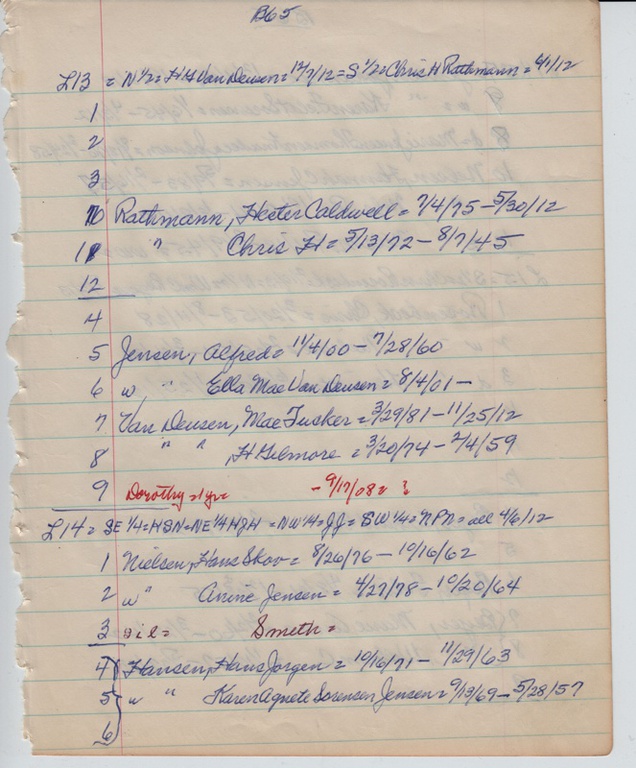 B65
L13 = N 1/2 = H G Van Deusen = 12/7/12 = S 1/2 = Chris H Rathmann = 6/1/12
1
2
3
10 Rathmann, Hester Caldwell = 7/4/75 - 5/30/12
11 " Chris H = 5/13/72 - 8/7/45
12
4
5 Jensen, Alfred = 11/4/00 - 7/28/60
6 w " Ella Mae Van Deusen = 8/4/01 -
7 Van Deusen, Mae Tucker = 3/29/81 - 11/25/12
8 " " , H Gilmore = 3/20/74 - 2/4/59
9 Dorothy = 1yr = - 9/17/08 = ?
L14 = SE 1/4 = HSN = NE 1/4 HJH = NW 1/4 = JJ = SW 1/4 = NPN = all 4/6/12
1 Nielsen, Hans Skov = 8/26/76 - 10/16/62
2 w " Anine Jensen = 4/27/78 - 10/20/64
3 oil = Smeth =
4 Hansen, Hans Jorgen = 10/16/71 - 11/29/63
5 w " Karen Agnete Sorensen Jensen = 9/13/69 - 5/28/57
6